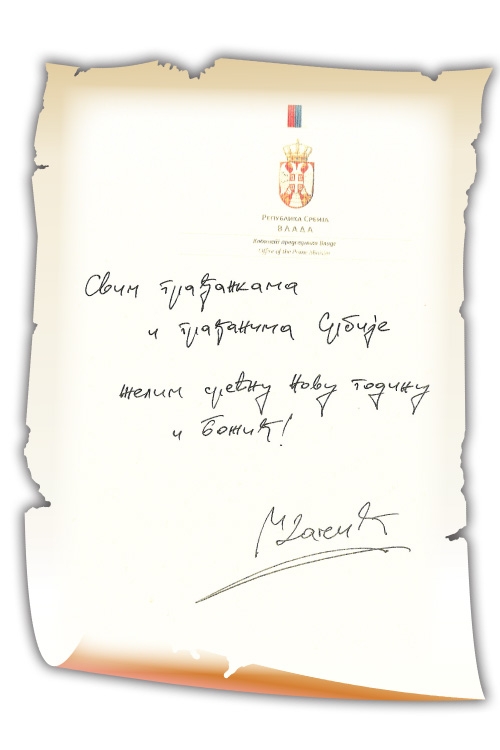 РЕПУБЛИКА СРБИЈА
ВЛАДА
Кабинет председника Владе
Office of the Prime Minister
Свим грађанкама
и грађанима Србије
желим срећну Нову годину
и Божић!